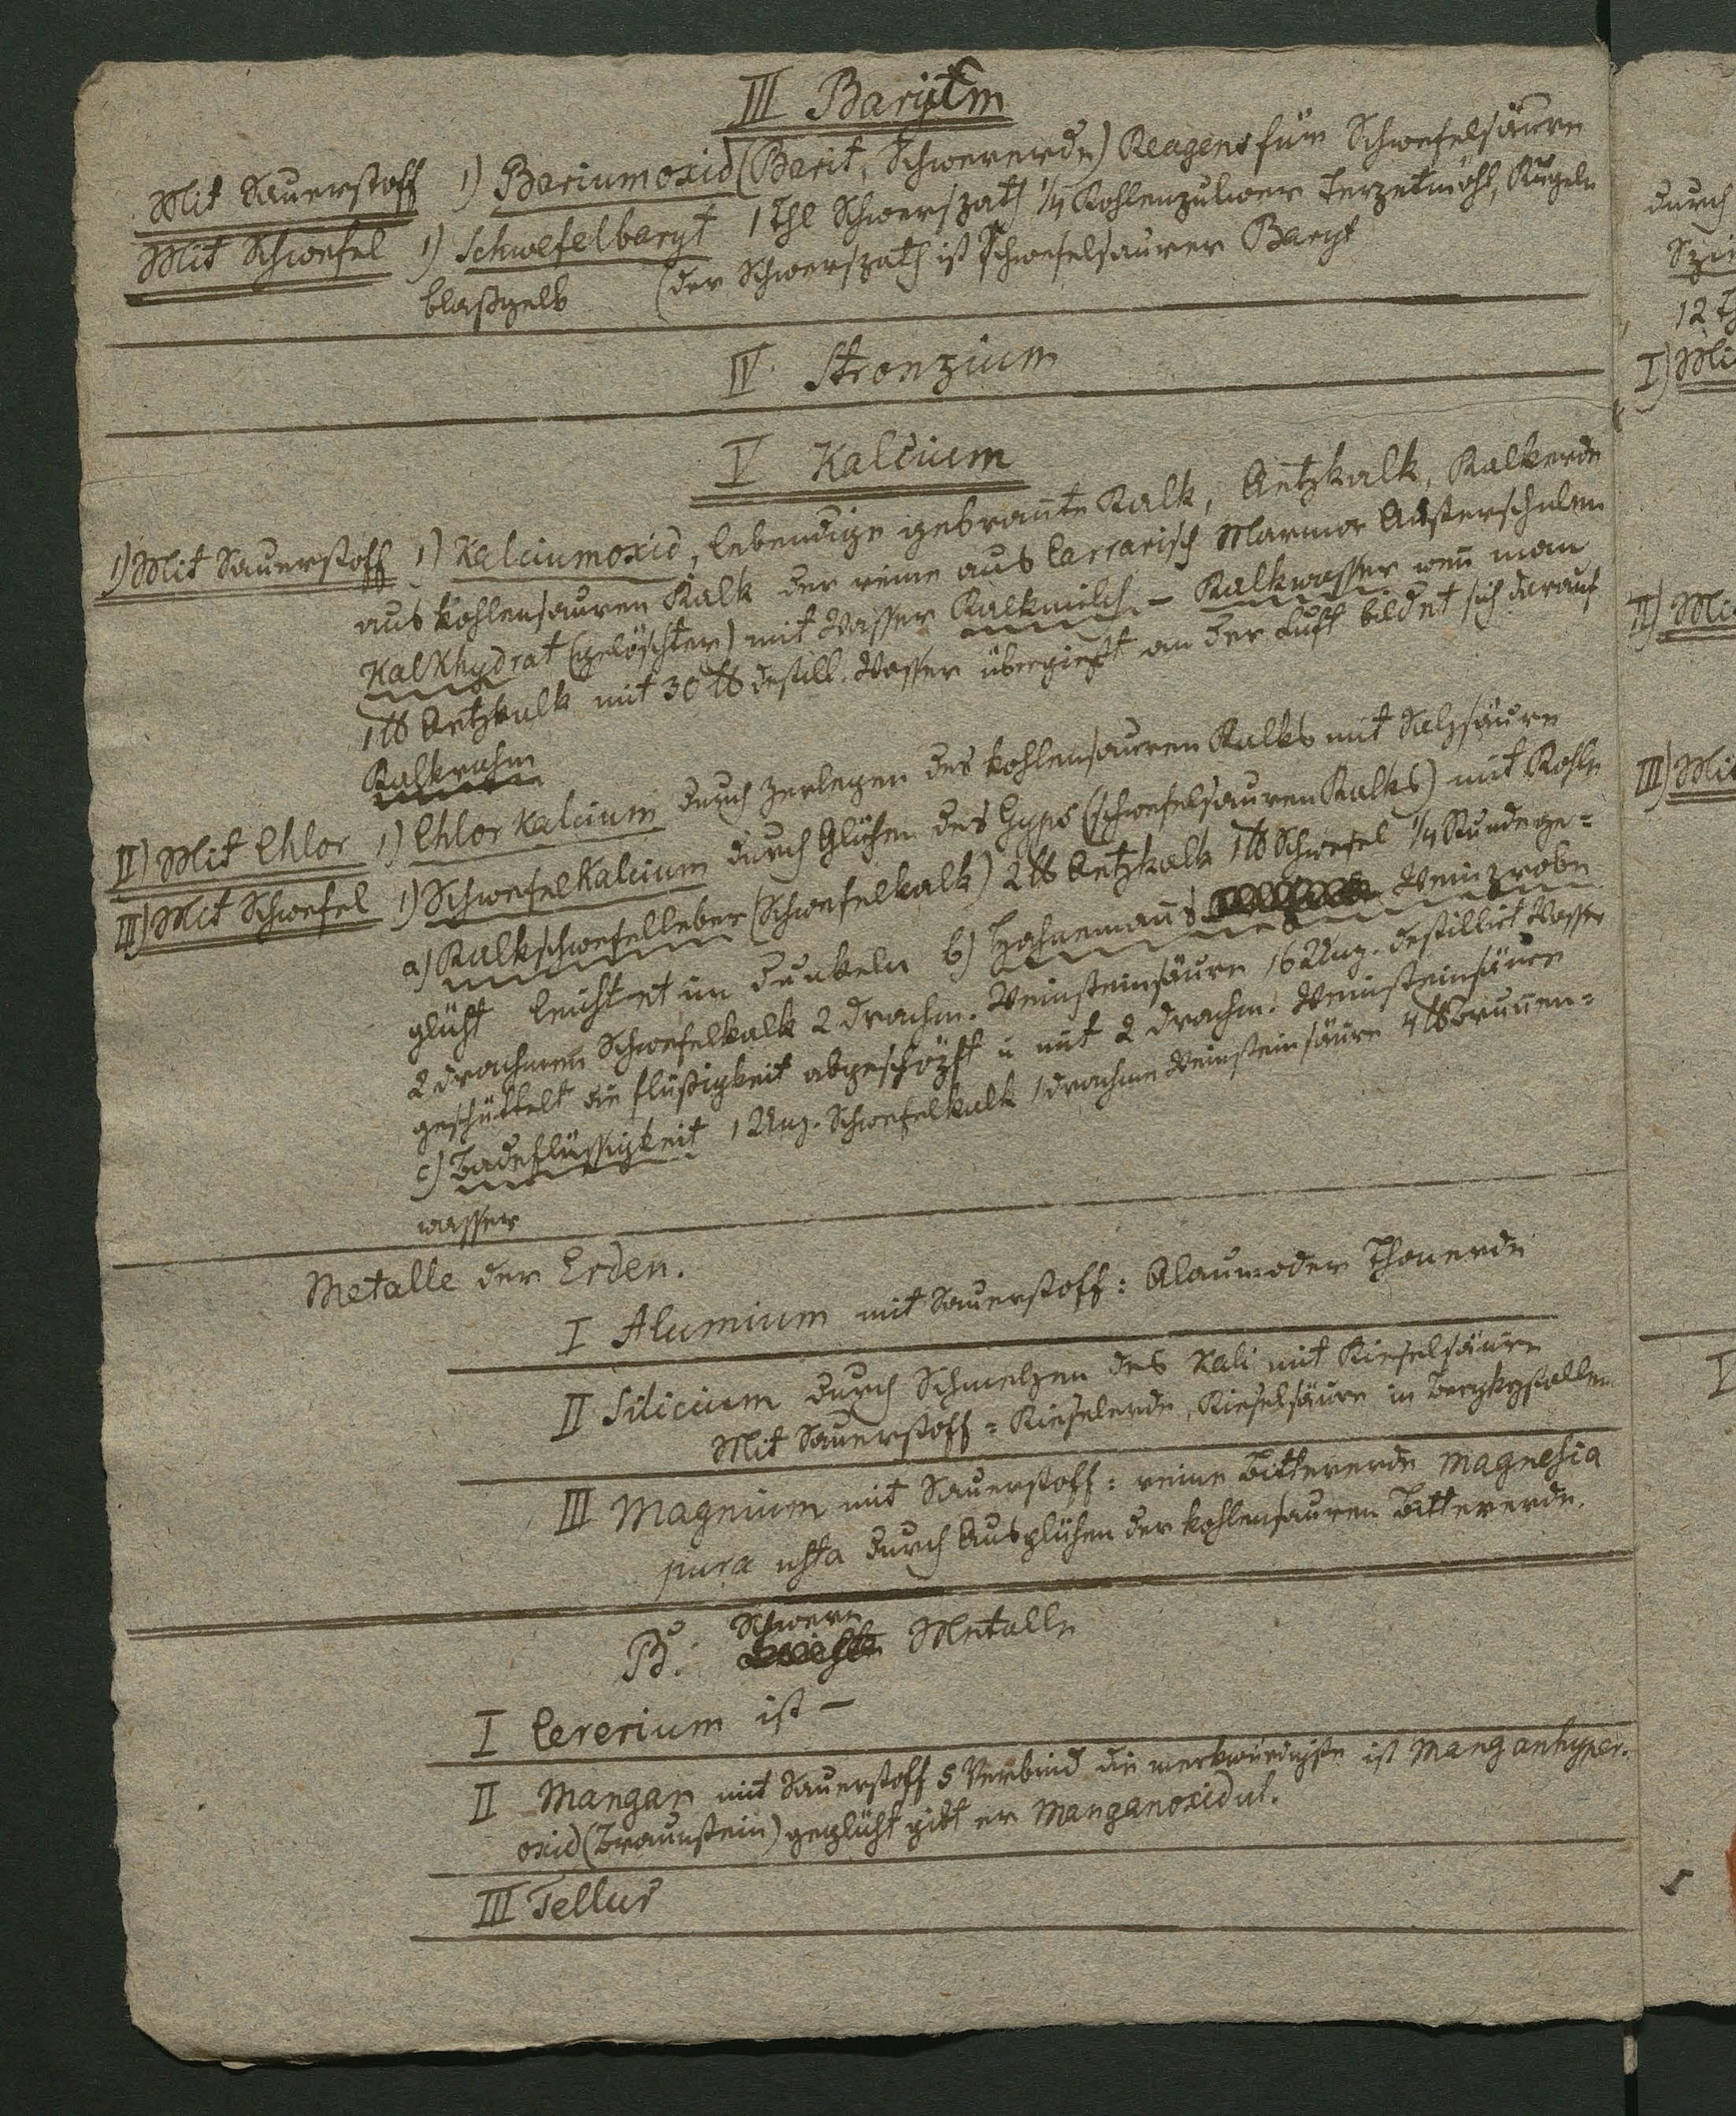 III Barytm
Mit Sauerstoff 1) Bariumoxid (Barit, Schwererde) Reagens für Schwefelsäure
Mit Schwefel 1) Schwefelbaryt 1 Thl Schwerspath 1/4 Kohlenpulver Terpetinöhl, Kugeln
blaßgelb (der Schwerspath ist schwefelsaurer Baryt
IV Stronzium
V Kalcium
1) Mit Sauerstoff 1) Kalciumoxid, lebendige gebrannte Kalk, Aetzkalk, Kalkerde
aus kohlensauren Kalk der reine aus Carrarisch Marmor Austerschalen
Kalkhydrat (gelöschter) mit Wasser Kalkmilch – Kalkwasser weñ man
1 ℔ Aetzkalk mit 30 ℔ destill. Wasser übergießt an der Luft bildet sich darauf
Kalkrahm
II) Mit Chlor 1) Chlorkalcium durch Zerlegen des kohlensauren Kalks mit Salzsäure
III) Mit Schwefel 1) Schwefelkalcium durch Glühen des Gyps (schwefelsauren Kalks) mit Kohle
a) Kalkschwefelleber (Schwefelkalk) 2 ℔ Aetzkalk 1 ℔ Schwefel 1/4 Stunde ge=
glüht leichtet im Dunkeln b) Hahnemañs Weinprobe
2 Drachmen Schwefelkalk 2 Drachm. Weinsteinsäure 16 Unz. destillirt Wasser
geschüttelt die flüßigkeit abgeschöpft u mit 2 Drachm. Weinsteinsäure
c) Badeflüssigkeit 1 Unz. Schwefelkalk 1 Drachme Weinsteinsäure 4 ℔ Bruñen=
wasser
Metalle der Erden.
I Alumium mit Sauerstoff: Alaun oder Thonerde
II Silicium durch Schmelzen des Kali mit Kieselsäure
Mit Sauerstoff = Kieselerde, Kieselsäure in Bergkrystallen
III Magnium mit Sauerstoff: reine Bittererde Magnesia
pura usta durch Ausglühen der kohlensauren Bittererde.
B. Schwere Metalle
I Cererium ist –
II Mangan mit Sauerstoff 5 Verbind die merkwürdigste ist Manganhyper.
oxid (Braunstein) geglüht gibt er Manganoxidul.
III Tellur
durch
12
I) Mi
II) Mi
III) Mit
I